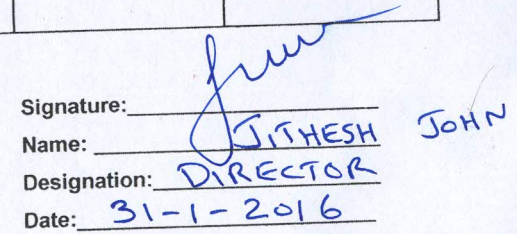 Signature:
Name: JITHESH JOHN
Designation: DIRECTOR
Date: 31-1-2016